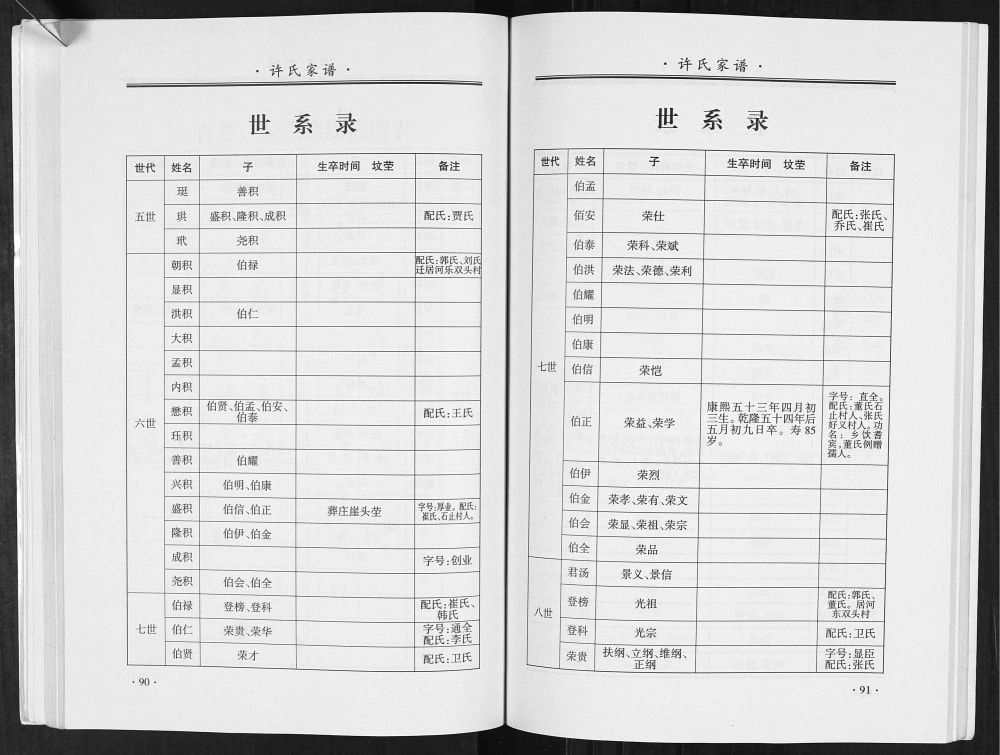 ·许氏家谱·
世系录
世代 姓名 子 生卒时间 坟茔 备注
五世
珽 善积
珙 盛积、隆积、成积 配氏:贾氏
玳 尧积
六世
朝积 伯禄 配氏:郭氏、刘氏
迁居河乐双头村
显积
洪积 伯仁
大积
孟积
内积
懋积 伯贤、伯孟、伯安、
伯泰 配氏:王氏
珏积
善积 伯耀
兴积 伯明、伯康
盛积 伯信、伯正 葬庄崖头茔 字号:厚业。配氏:
崔氏、石止村人。
隆积 伯伊、伯金
成积 字号:创业
尧积 伯会、伯全
七世
伯禄 登榜、登科 配氏:崔氏、
韩氏
伯仁 荣贵、荣华 字号:通全
配氏:李氏
伯贤 荣才 配氏:卫氏
·90·
·许氏家谱·
世系录
世代 姓名 子 生卒时间 坟茔 备注
七世
伯孟
佰安 荣仕 配氏:张氏、
乔氏、崔氏
伯泰 荣科、荣斌
伯洪 荣法、荣德、荣利
伯耀
伯明
伯康
伯信 荣恺
伯正 荣益、荣学
康熙五十三年四月初
三生。乾隆五十四年后
五月初九日卒。寿85
岁。
字号:直全。
配氏:董氏石
止村人、张氏
好义村人。功
名:乡饮耆
宾,董氏例赠
孺人。
伯伊 荣烈
伯金 荣孝、荣有、荣文
伯会 荣显、荣祖、荣宗
伯全 荣品
八世
君汤 景义、景信
登榜 光祖 配氏:郭氏、
董氏。居河
东双头村
登科 光宗 配氏:卫氏
荣贵 扶纲、立纲、维纲、
正纲 字号:显臣
配氏:张氏
·91·